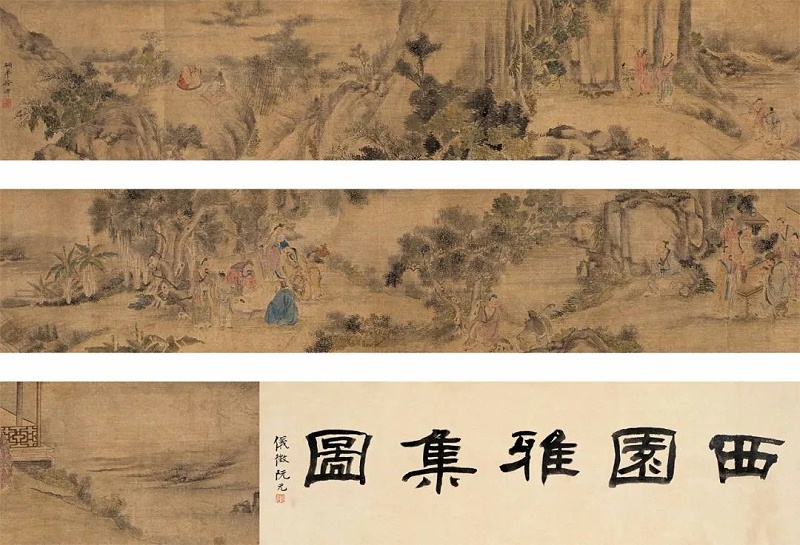 西園雅集圖
儀徵阮元